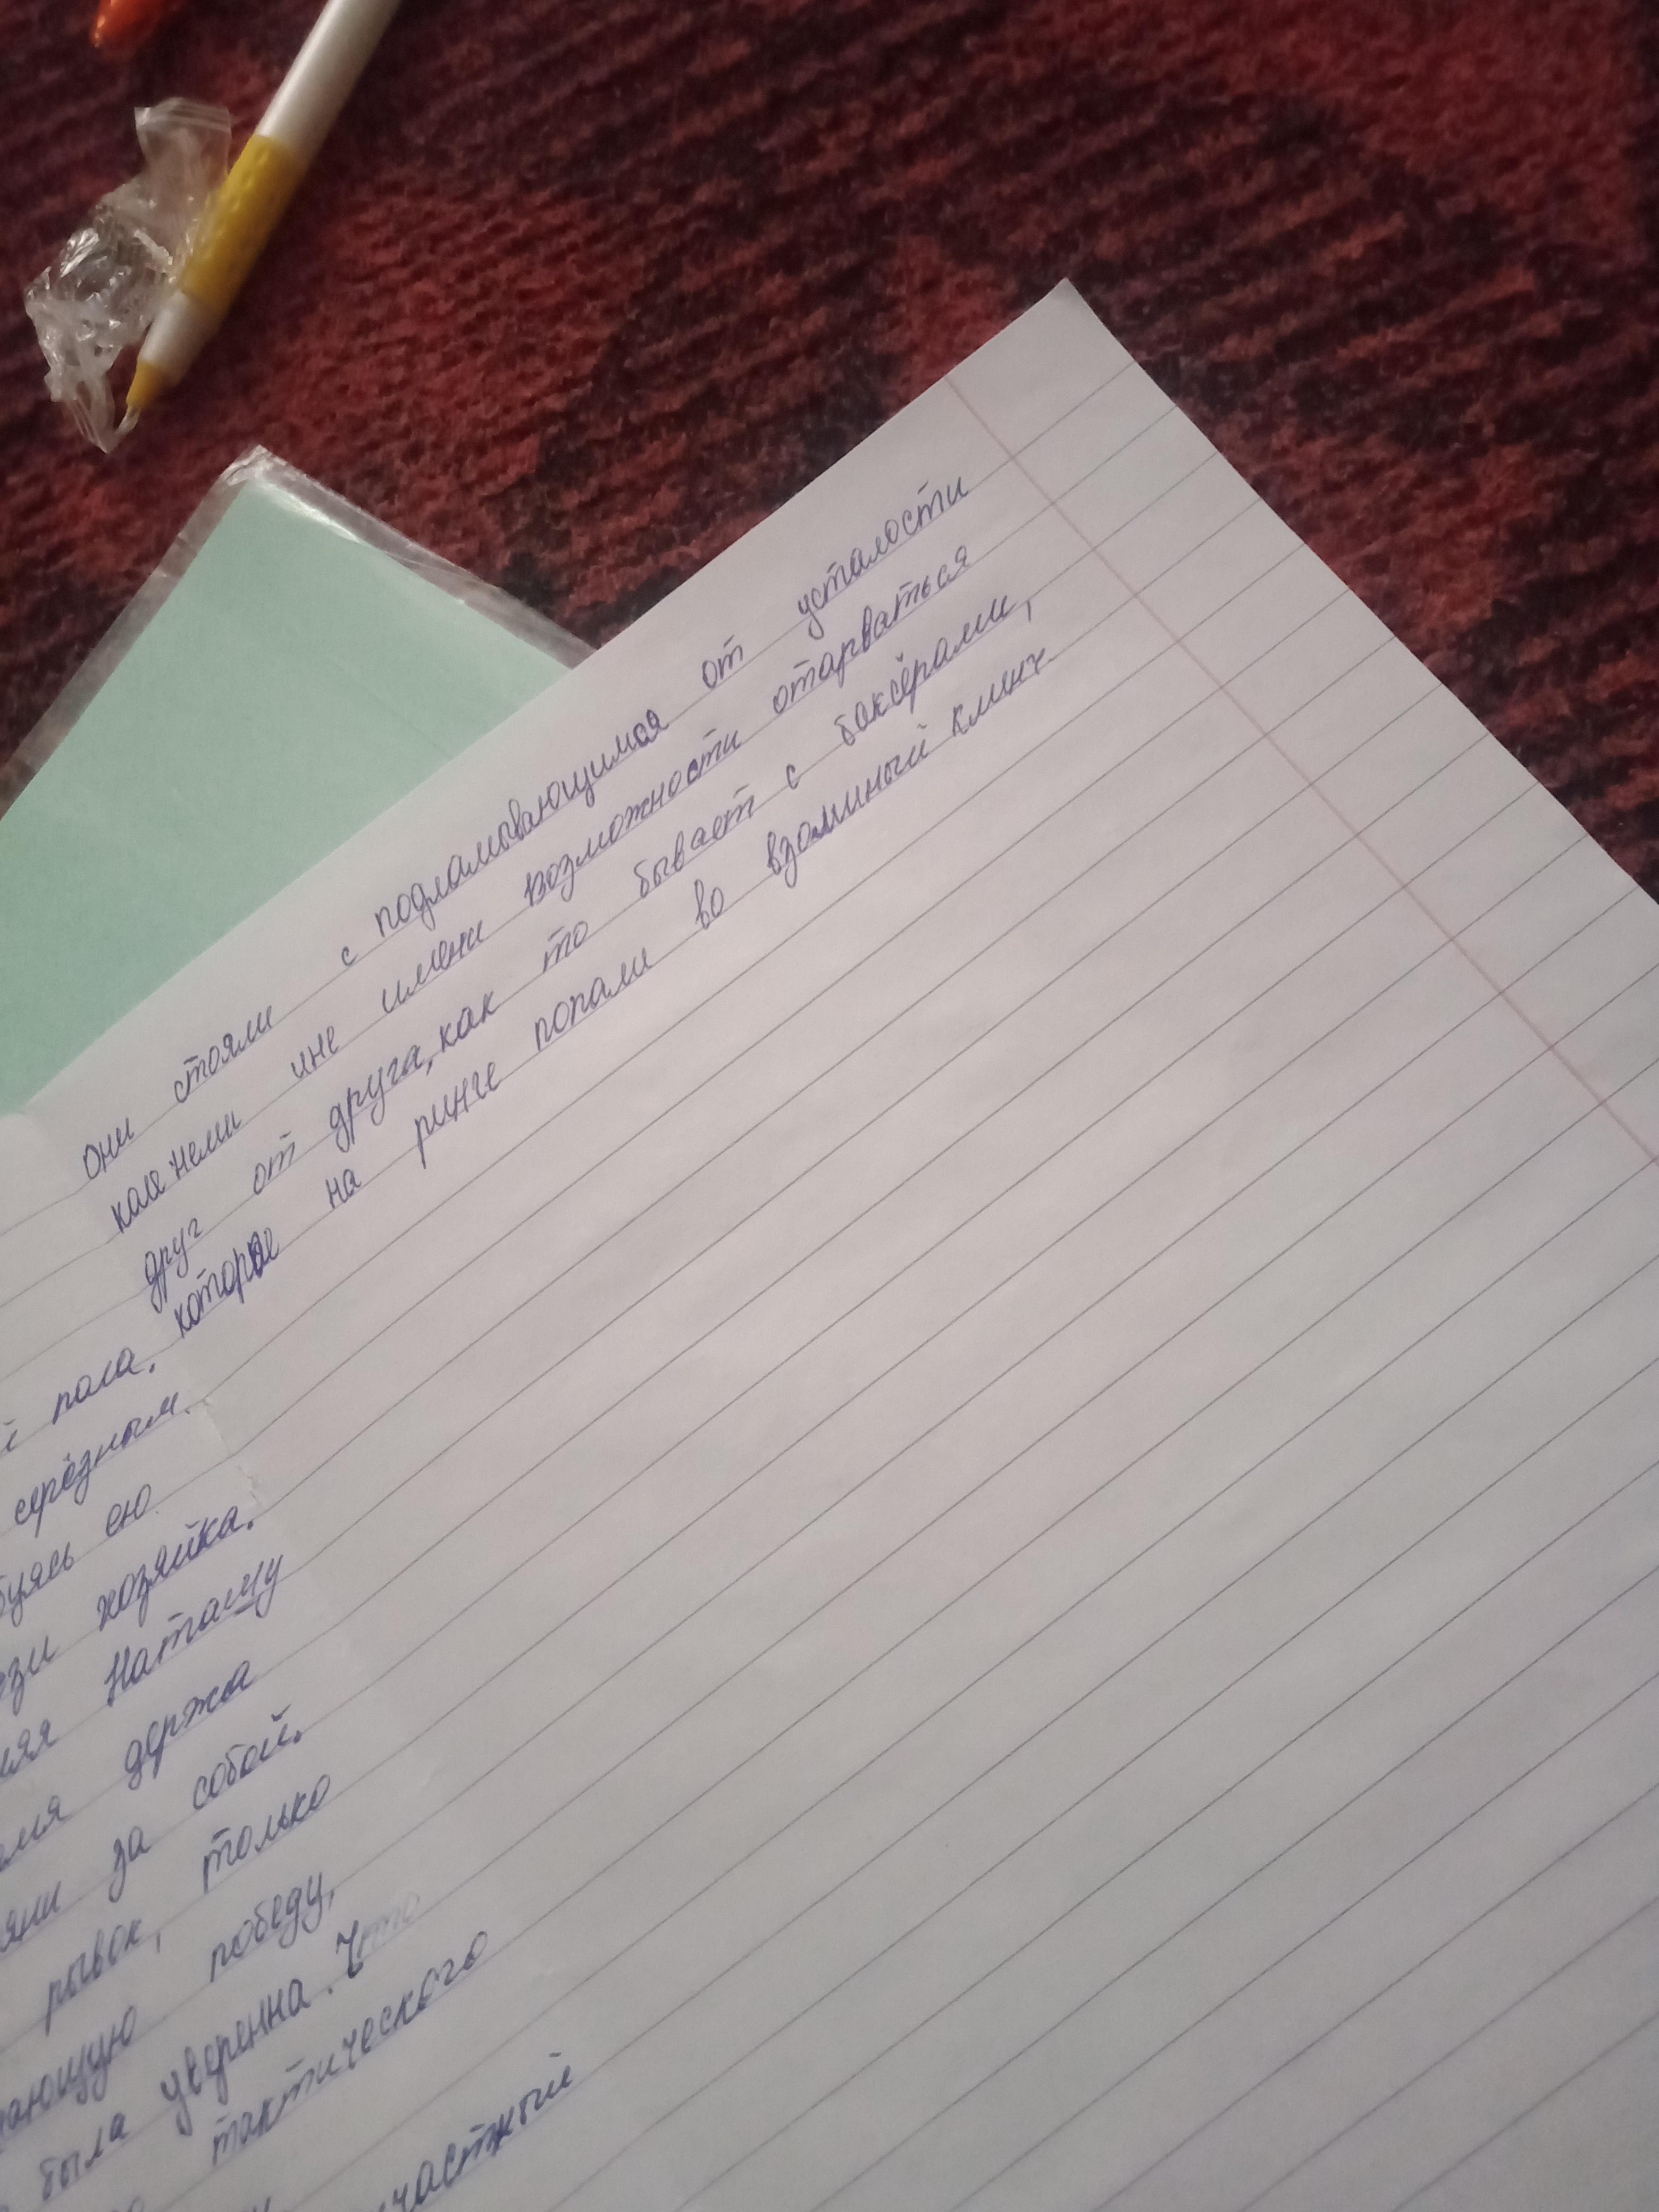 они стояли с подламывающимся от усталости
коленями ине имени возможности отарваться
друг от друга, как то бывает с баксёрами,
которые на ринге попали во взоминый клинч
пола.
серёзным.
ею.
хозяйка.
Наташу
держа
за собой.
рывок, только
победу,
была уверенна. Что
тактического